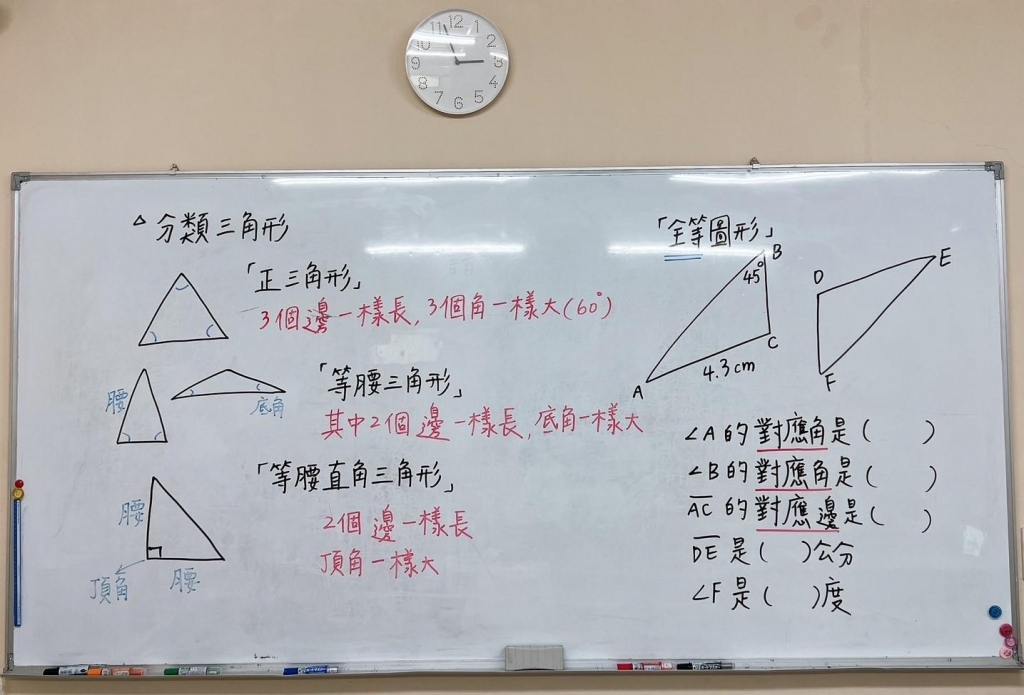 12
1
2
3
4
5
6
7
8
9
10
11
△分類三角形
「正三角形」
3個邊一樣長, 3個角一樣大(60°)
腰
底角
「等腰三角形」
其中2個邊一樣長, 底角一樣大
「等腰直角三角形」
腰
2個邊一樣長
頂角一樣大
頂角
腰
「全等圖形」
B
45°
C
A
4.3cm
D
E
F
∠A的對應角是(  )
∠B的對應角是(  )
A̅C̅的對應邊是(  )
D̅E̅是(  )公分
∠F是(  )度